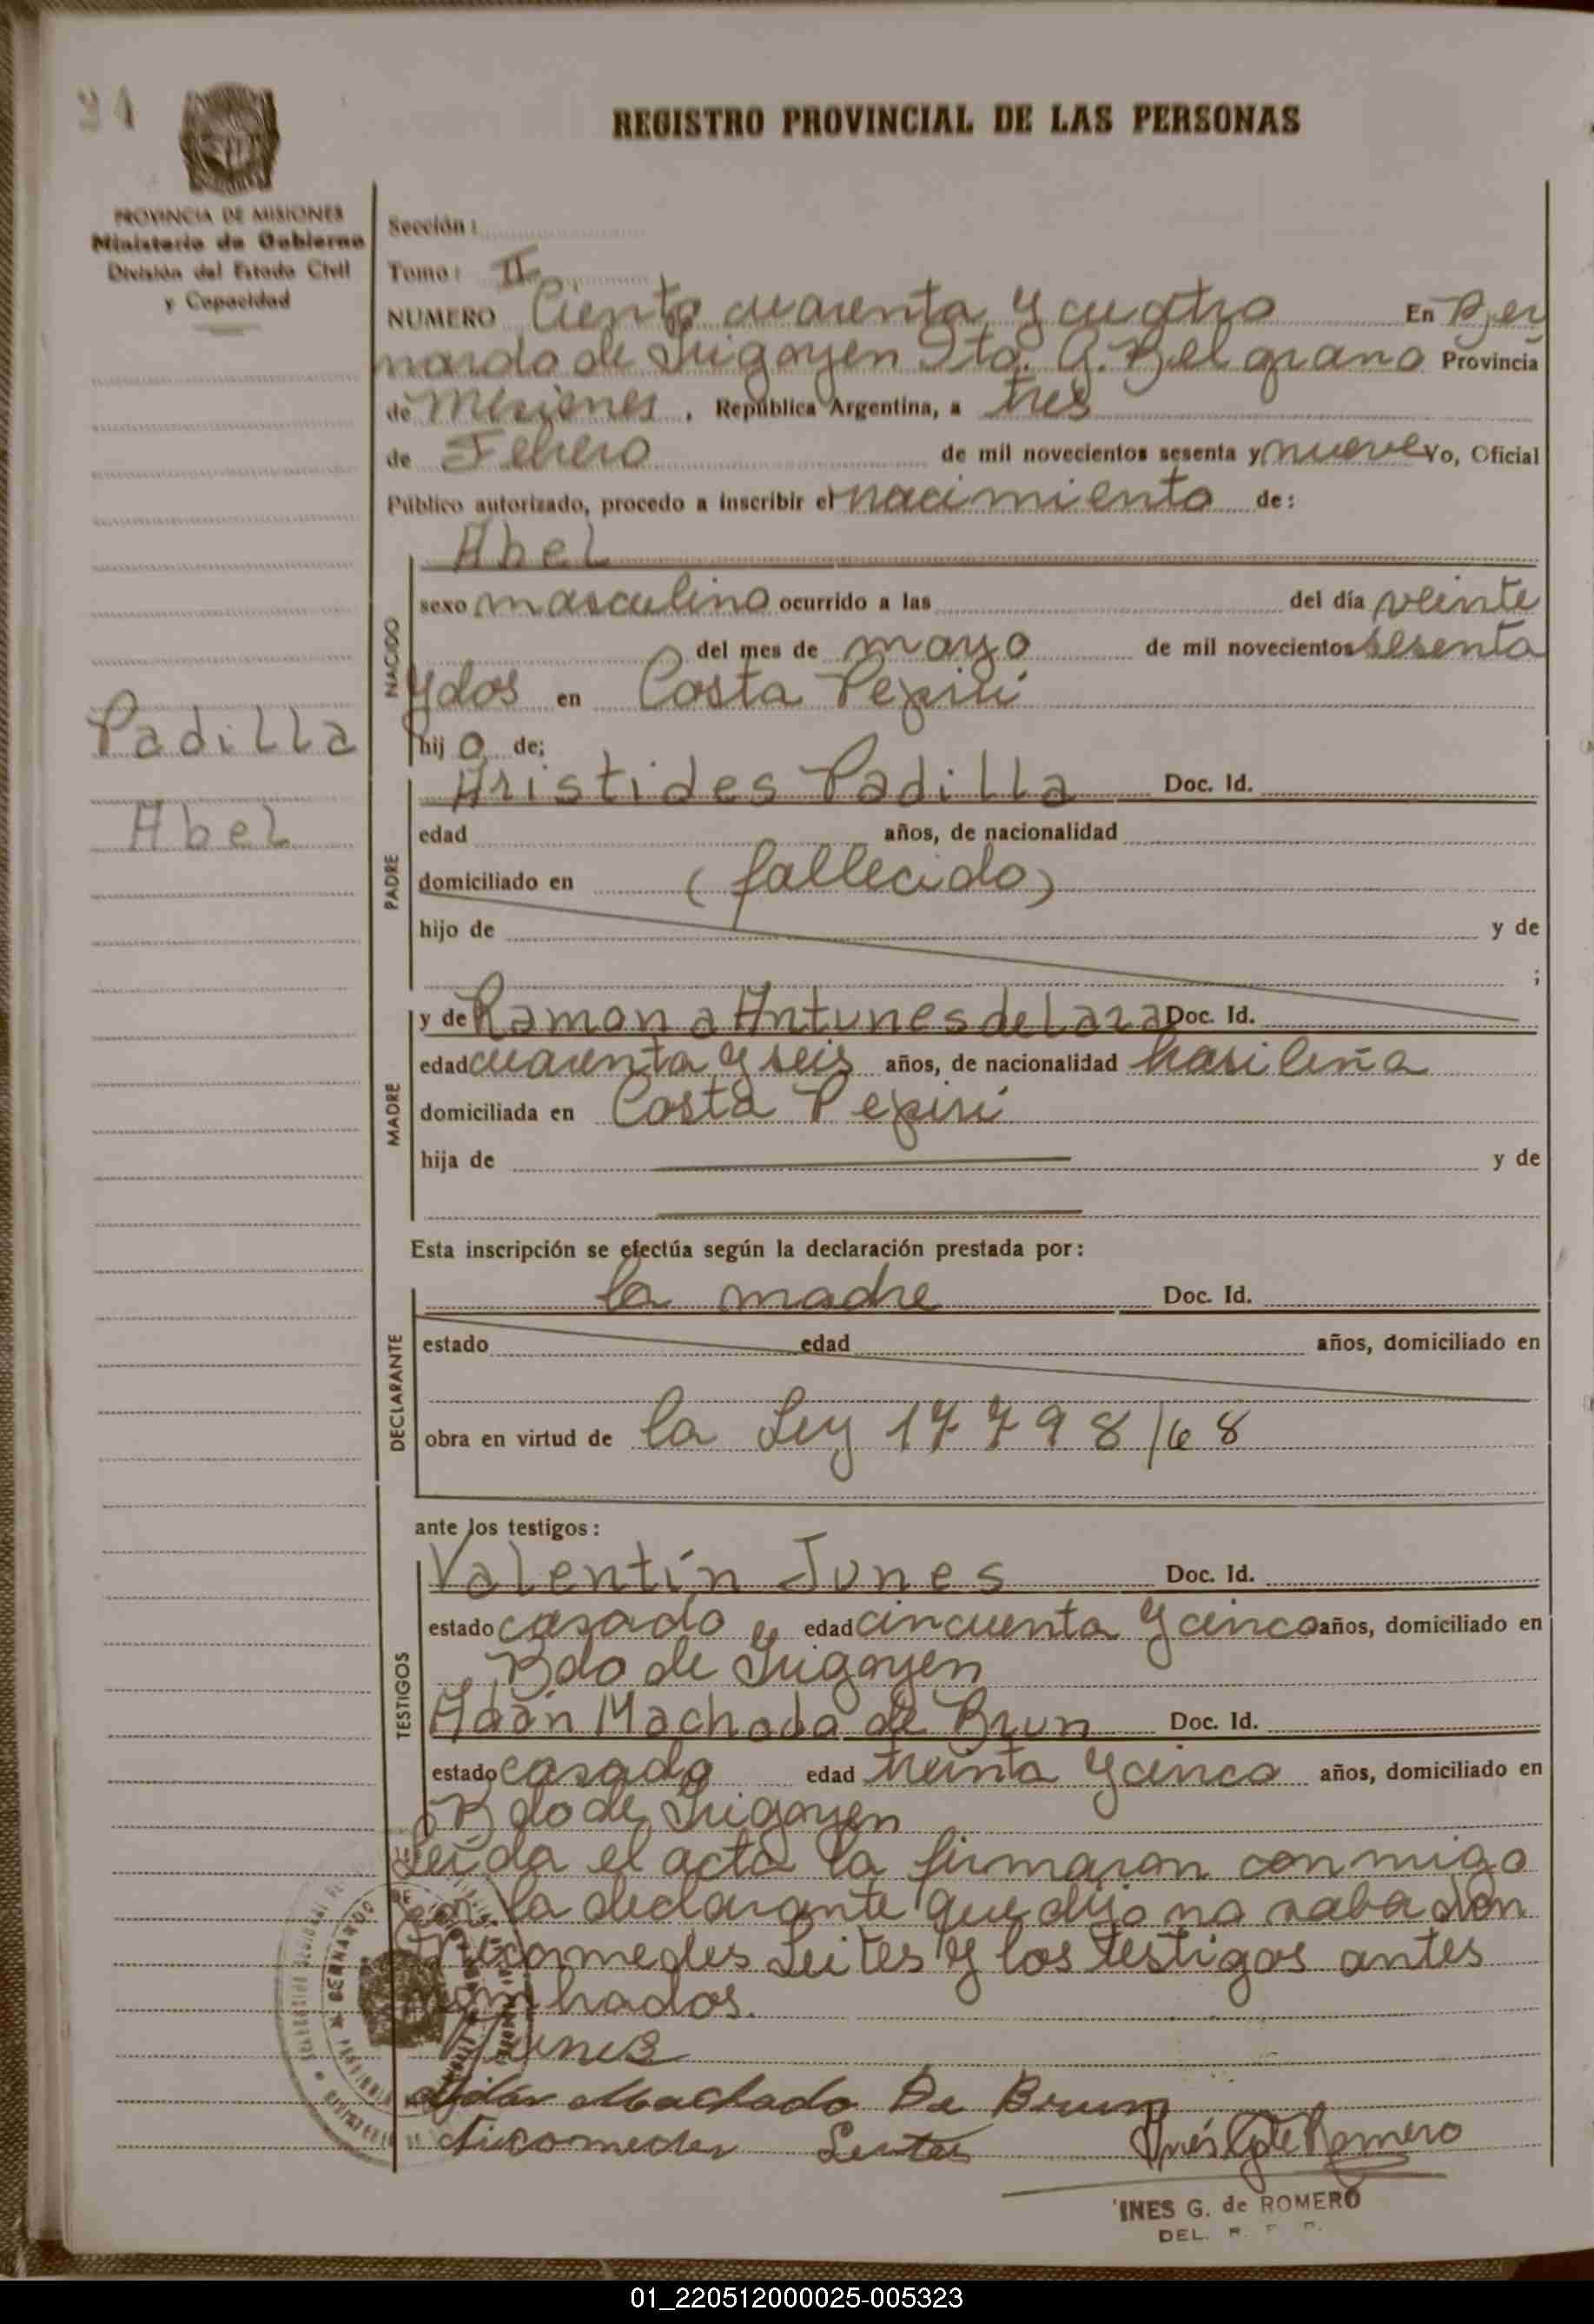 94
REGISTRO PROVINCIAL DE LAS PERSONAS
PROVINCIA DE MISIONES
Ministerio de Gobierno
División del Estado Civil
y Capacidad
Padilla
Abel
Sección:
Tomo: II
NUMERO Ciento cuarenta y cuatro En Ber
nardo de Irigoyen Dto. G. Belgrano Provincia
de Misiones, República Argentina, a tres
de Febrero de mil novecientos sesenta y nueve Yo, Oficial
Público autorizado, procedo a inscribir el nacimiento de:
NACIDO
Abel
sexo masculino ocurrido a las del día veinte
del mes de mayo de mil novecientos sesenta
y dos en Costa Pepirí
hij o de;
PADRE
Aristides Padilla Doc. Id.
edad años, de nacionalidad
domiciliado en (fallecido)
hijo de y de
;
MADRE
y de Ramona Antunes de Lara Doc. Id.
edad cuarenta y seis años, de nacionalidad brasileña
domiciliada en Costa Pepirí
hija de y de
Esta inscripción se efectúa según la declaración prestada por:
DECLARANTE
la madre Doc. Id.
estado edad años, domiciliado en
obra en virtud de la Ley 17798/68
ante los testigos:
TESTIGOS
Valentín Junes Doc. Id.
estado casado edad cincuenta y cinco años, domiciliado en
Bdo de Irigoyen
Adán Machado de Brun Doc. Id.
estado casado edad treinta y cinco años, domiciliado en
Bdo de Irigoyen
Leída el acta la firmaron conmigo
por la declarante que dijo no saber don
Nicomedes Leites y los testigos antes
nombrados.
Junes
Adan Machado De Brun
Nicomedes Leites
Inés G de Romero
INES G. de ROMERO
DEL. R. P. P.
BERNARDO DE
01_220512000025-005323